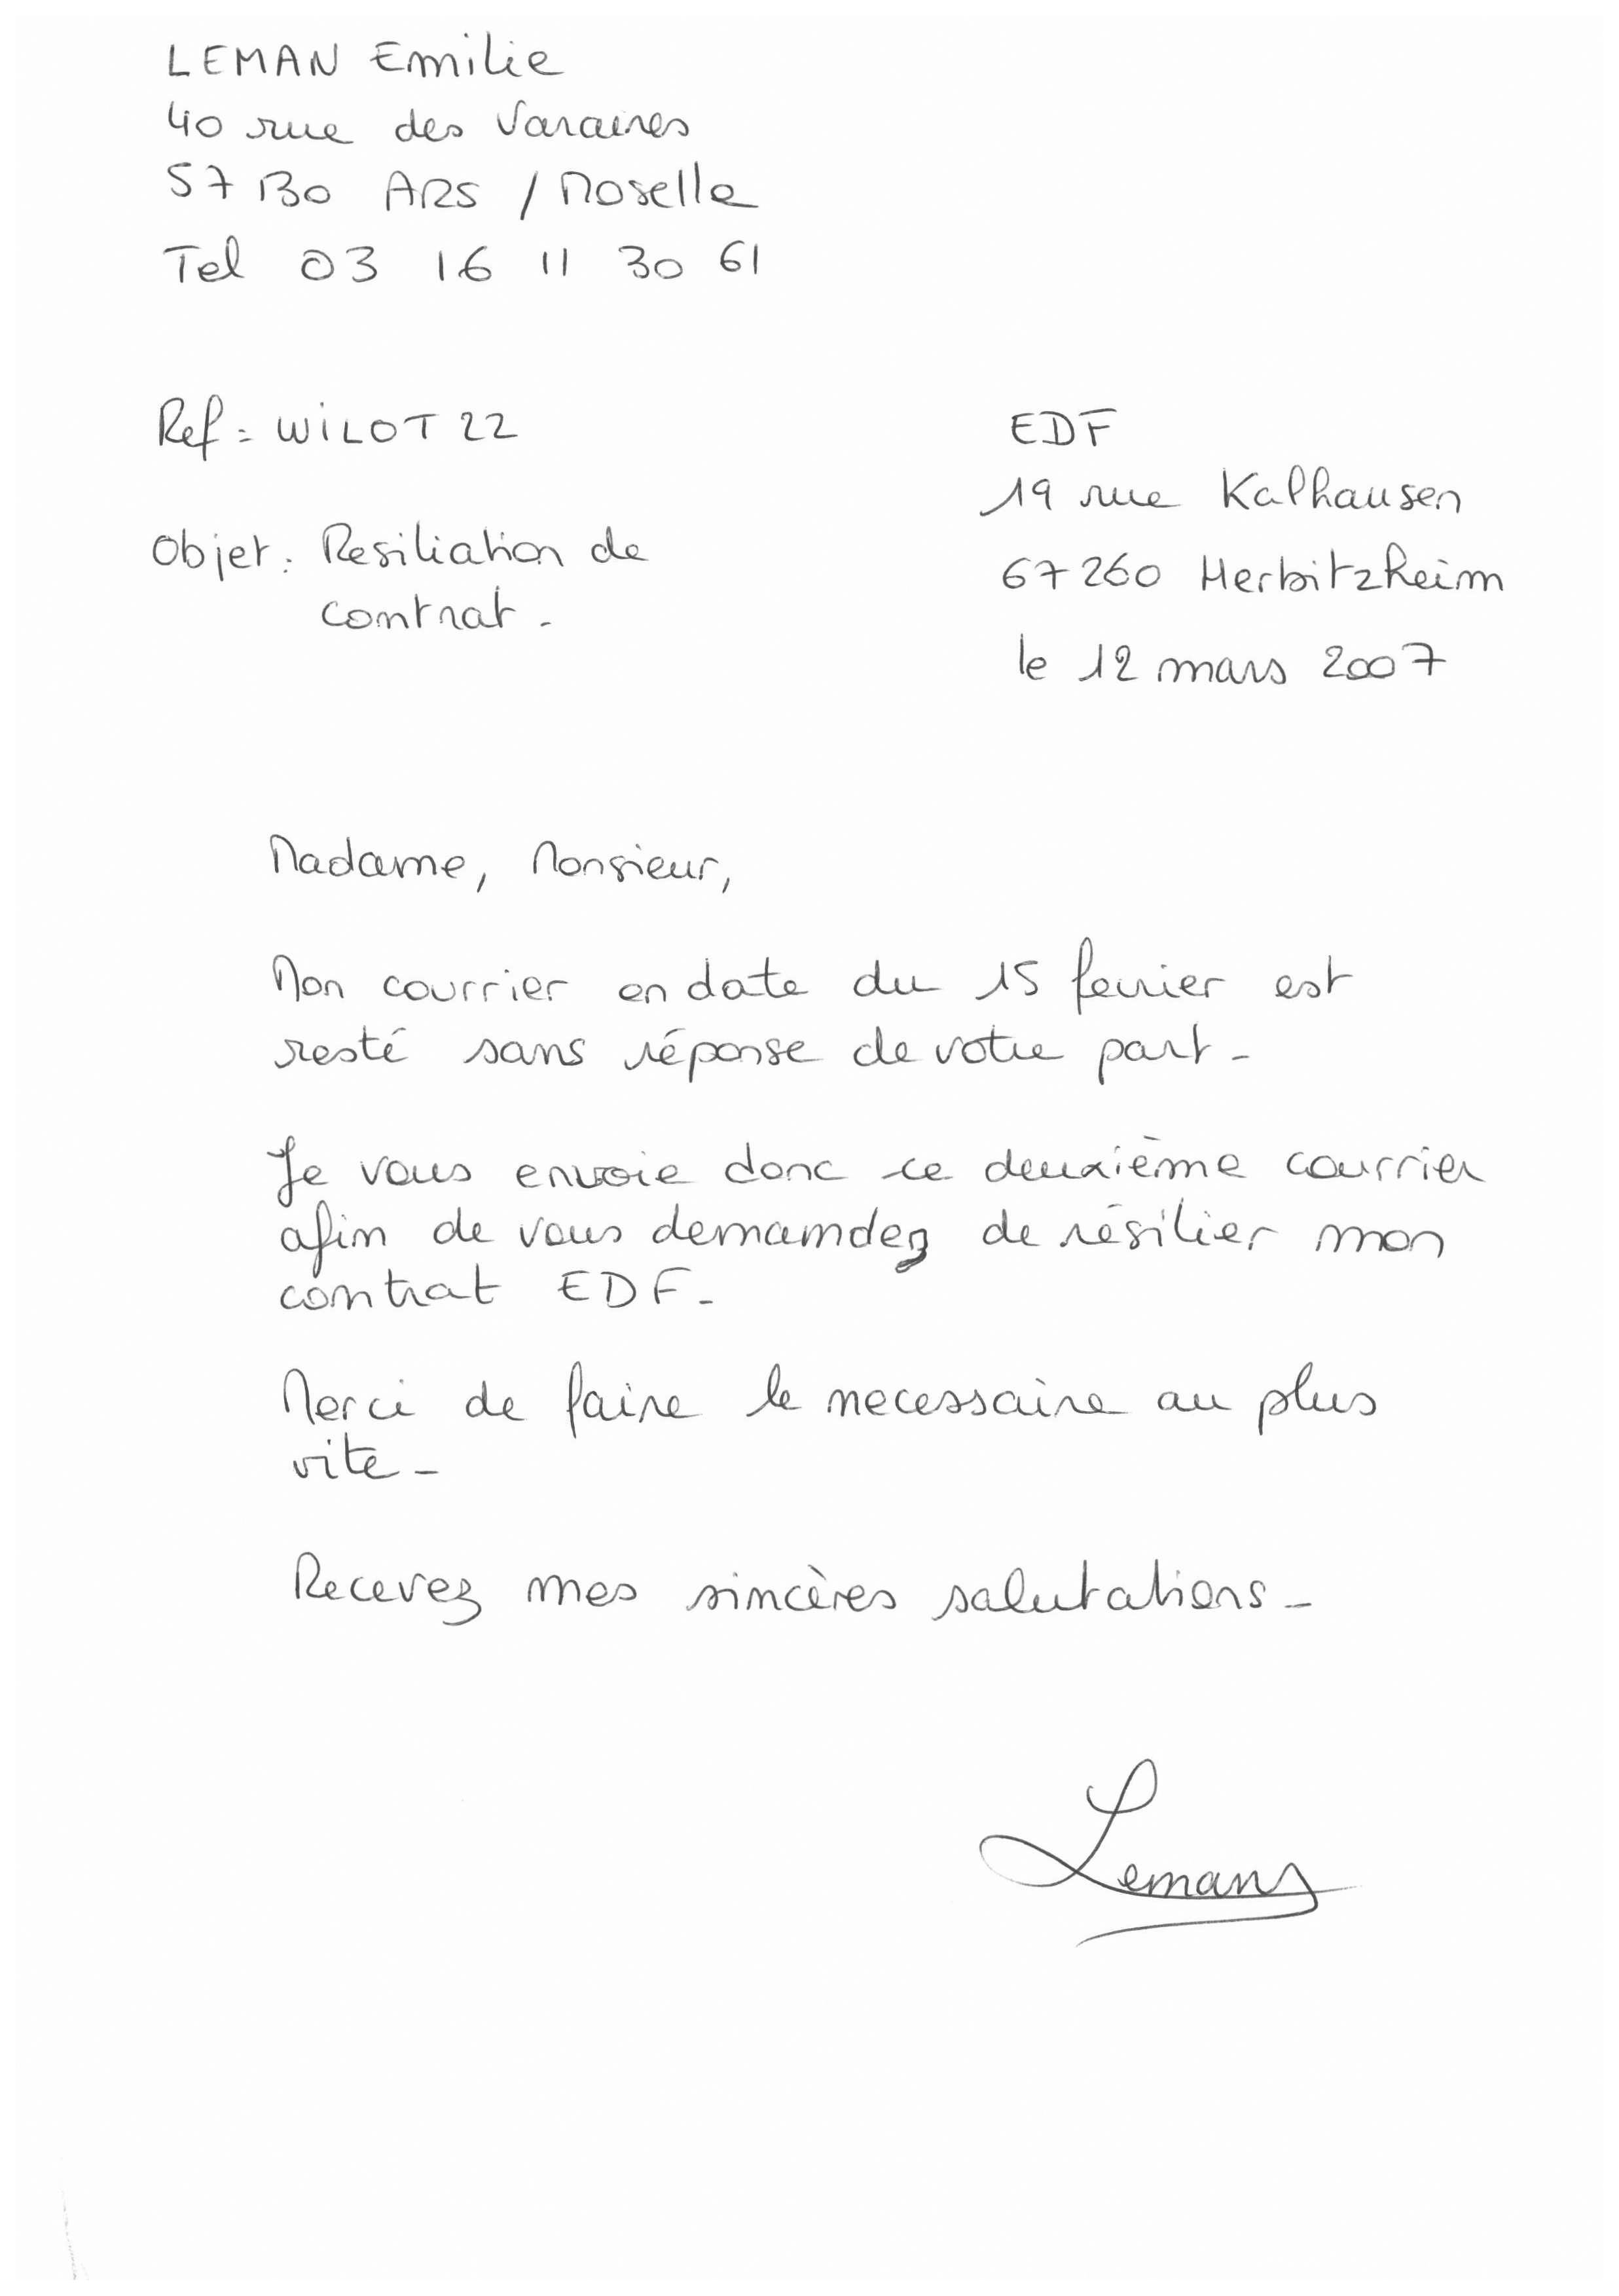 LEMAN Emilie
40 rue des Varaines
57130 ARS / Moselle
Tel 03 16 11 30 61
Ref : WILOT 22
Objet : Resiliation de
contrat.
EDF
19 rue Kalhausen
67260 Herbitzheim
le 12 mars 2007
Madame, Monsieur,
Mon courrier en date du 15 fevrier est
resté sans réponse de votre part.
Je vous envoie donc ce deuxième courrier
afin de vous demander de résilier mon
contrat EDF.
Merci de faire le necessaire au plus
vite.
Recevez mes sincères salutations.
Lemans